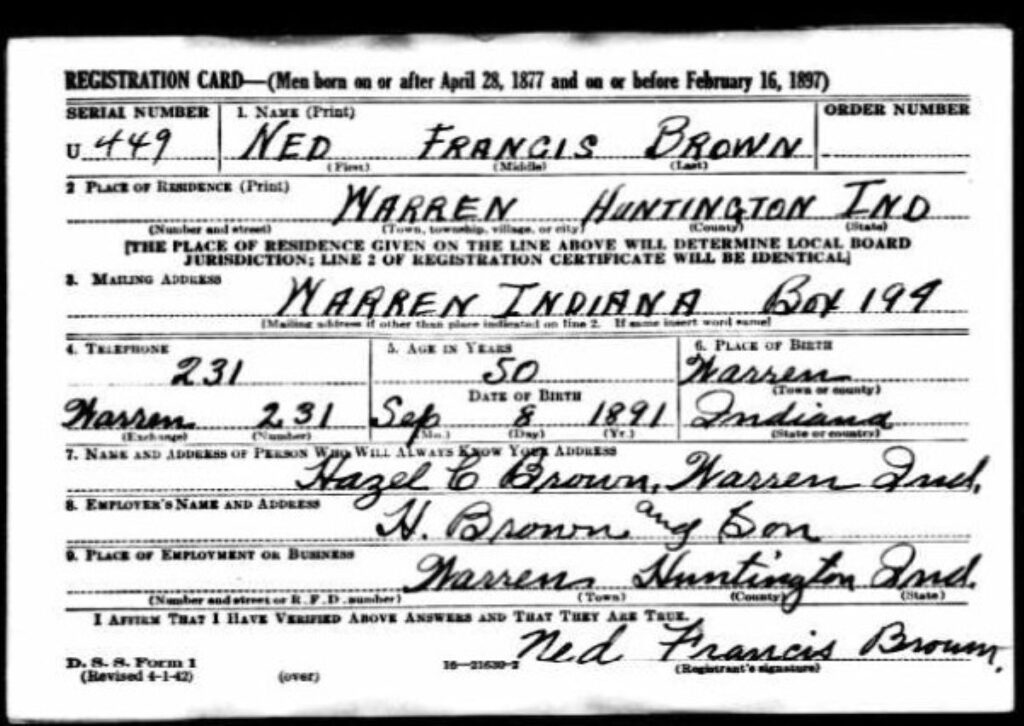 REGISTRATION CARD—(Men born on or after April 28, 1877 and on or before February 16, 1897)
SERIAL NUMBER 1. NAME (Print) ORDER NUMBER
U 449 NED FRANCIS BROWN
(First) (Middle) (Last)
2 PLACE OF RESIDENCE (Print)
WARREN HUNTINGTON IND
(Number and street) (Town, township, village, or city) (County) (State)
[THE PLACE OF RESIDENCE GIVEN ON THE LINE ABOVE WILL DETERMINE LOCAL BOARD
JURISDICTION; LINE 2 OF REGISTRATION CERTIFICATE WILL BE IDENTICAL]
3. MAILING ADDRESS
WARREN INDIANA BOX 194
[Mailing address if other than place indicated on line 2. If same insert word same]
4. TELEPHONE 5. AGE IN YEARS 6. PLACE OF BIRTH
231 50 Warren
DATE OF BIRTH (Town or county)
Warren 231 Sep 8 1891 Indiana
(Exchange) (Number) (Mo.) (Day) (Yr.) (State or country)
7. NAME AND ADDRESS OF PERSON WHO WILL ALWAYS KNOW YOUR ADDRESS
Hazel C Brown, Warren Ind.
8. EMPLOYER'S NAME AND ADDRESS
H. Brown and Son
9. PLACE OF EMPLOYMENT OR BUSINESS
Warren Huntington Ind.
(Number and street or R. F. D. number) (Town) (County) (State)
I AFFIRM THAT I HAVE VERIFIED ABOVE ANSWERS AND THAT THEY ARE TRUE.
Ned Francis Brown.
D. S. S. Form 1 16—21630-2 (Registrant's signature)
(Revised 4-1-42) (over)